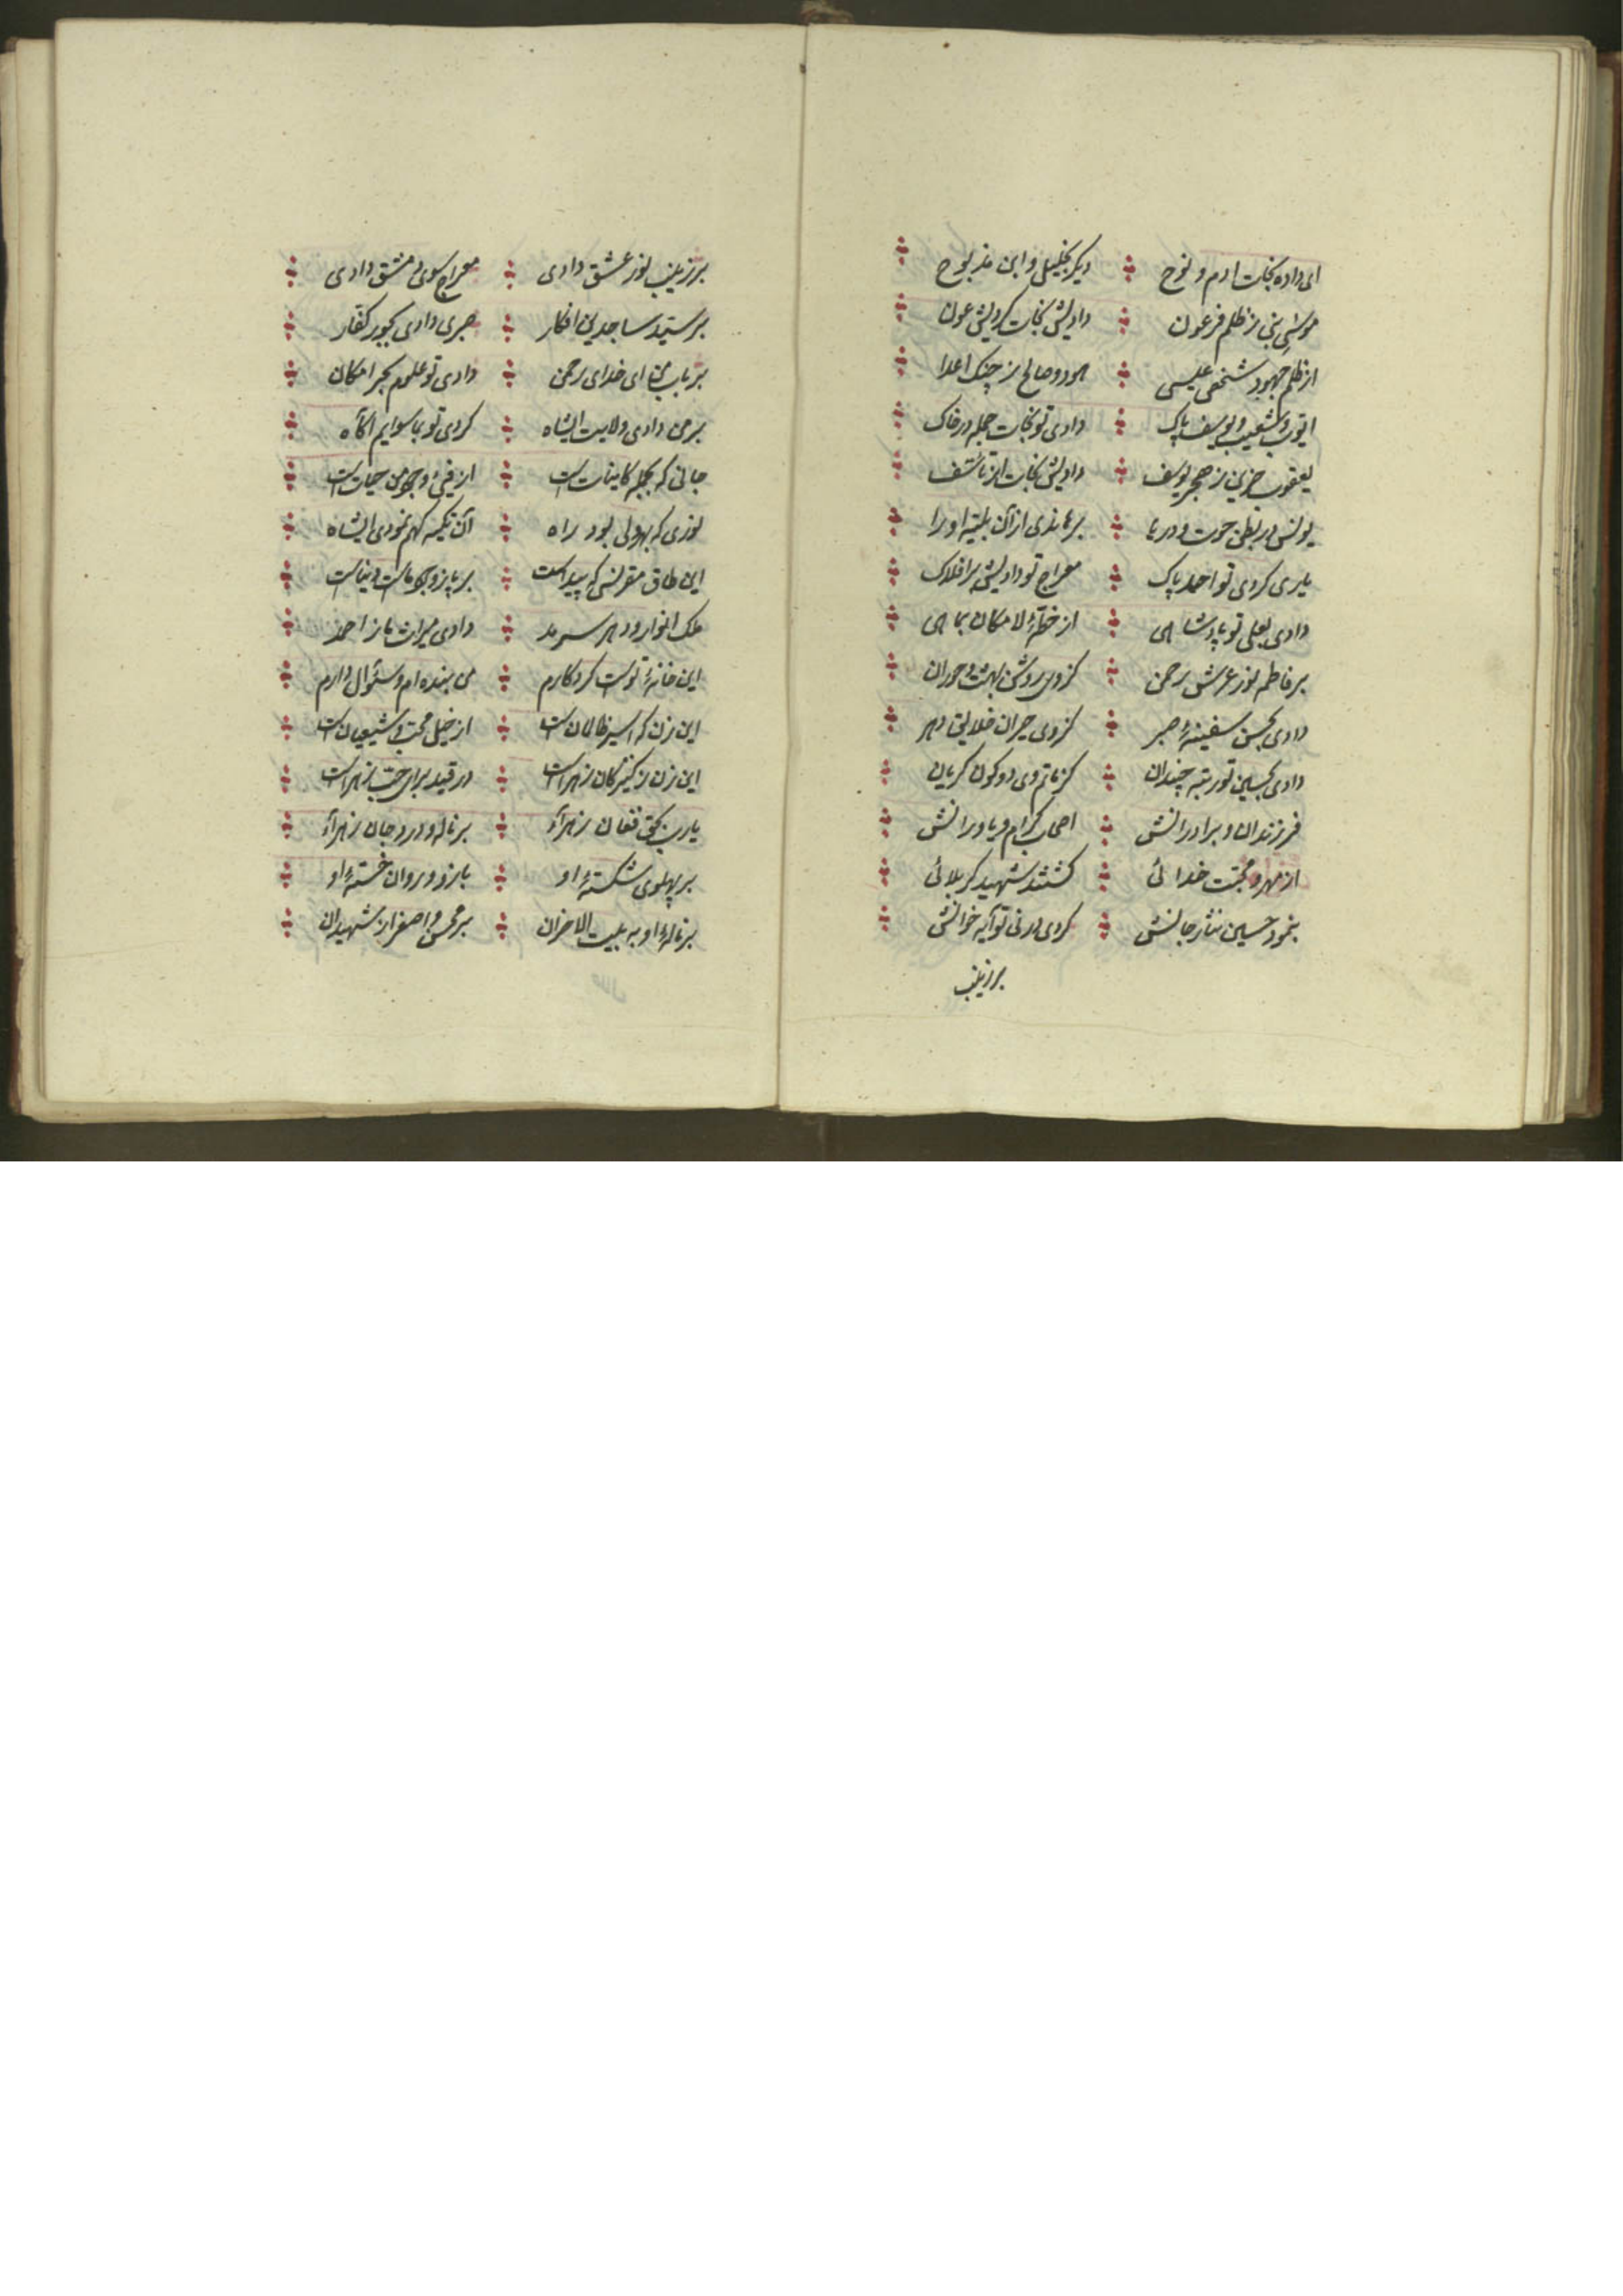 ای داده نجات ادم و نوح دیگر بخلیل و ابن مذبوح
موسی نبی ز ظلم فرعون دادیش نجات کردیش عون
از ظلم جهود شخص عیسی هود و صالح ز چنک اعدا
ایوب و شعیب و یوسف پاک دادی تو نجات جمله در خاک
یعقوب حزین ز هجر یوسف دادیش نجات از تاسف
یونس در بطن حوت و دریا برهاندی از آن بلیته او را
یاری کردی تو احمد پاک معراج تو دادیش بر افلاک
دادی بعلی تو پادشاهی از خطهٔ لامکان بماهی
بر فاطم نور عرش رحمن کز وی روشن بهشت و حوران
دادی بحسن سفینهٔ صبر کز وی حیران خلایق دهر
دادی بحسین تو رتبه چندان کز ماتم وی دو کون کریان
فرزندان و برادرانش اصحاب کرام و یاورانش
از مهر و محبت خدائی کشتند شهید کربلائی
بنمود حسین نثار جانش کردی تو آیه خوانش
بر زینب
بر زینب نور عشق دادی معراج سوی دمشق دادی
بر سید ساجدین افکار صبری دادی بجور کفار
بر باب من ای خدای رحمن دادی تو علوم بحر امکان
بر من دادی ولایت ایشاه کردی تو بماسوایم آکاه
جانی که بجمله کاینات است از فیئ وجود من حیات است
نوری که بهر ولی بود راه آن تکیه کهم نمودی ایشاه
این طاق مقرنس که پیداست بر پا ز وجود ماست و بیناست
ملک انوار و دهر سرمد دادی میراث ما ز احمد
این خانهٔ توست کردکارم من بنده ام و سئوال دارم
این زن که اسیر ظالمان است از خیل محب و شیعیان است
این زن ز کنیزکان زهراست در قید برای حب زهراست
یارب بحق فغان زهرآء بر ناله و درد جان زهرآء
بر پهلوی شکستهٔ او بازو و روان خستهٔ او
بر نالهٔ او به بیت الاحزان بر محسن و اصغر از شهیدان